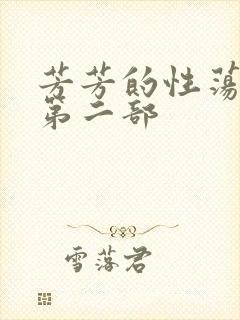 芳芳的性荡
第二部
雪落君